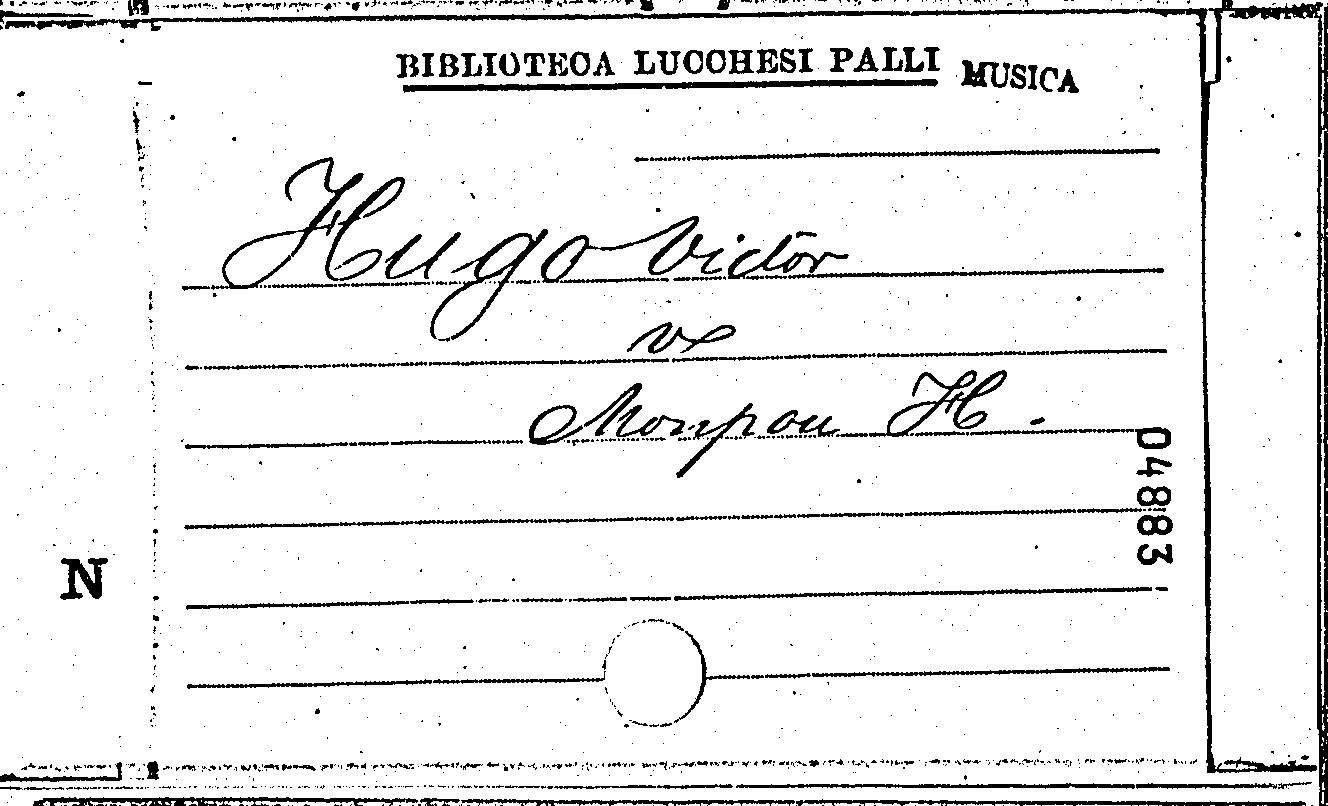 BIBLIOTECA LUCCHESI PALLI MUSICA
Hugo Victor
v
Monpou H.
04883
N